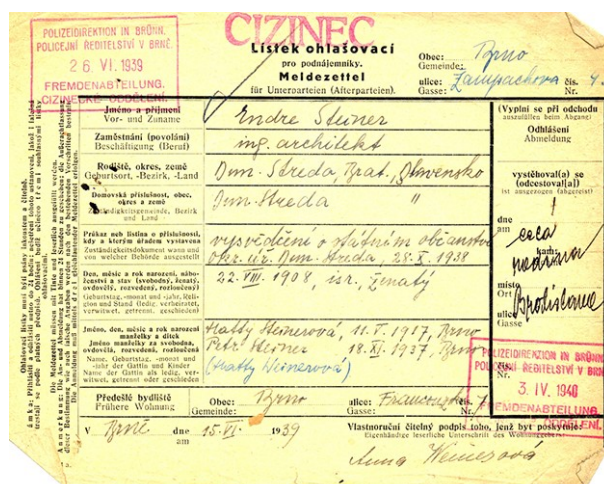 CIZINEC
POLIZEIDIREKTION IN BRÜNN.
POLICEJNÍ ŘEDITELSTVÍ V BRNĚ.
26. VI. 1939
FREMDENABTEILUNG.
CIZINECKÉ ODDĚLENÍ.
Lístek ohlašovací
pro podnájemníky.
Meldezettel
für Unterparteien (Afterparteien).
Obec: Brno
Gemeinde:
ulice: čís. 4.
Gasse:
Jméno a příjmení
Vor- und Zuname
Endre Steiner
Zaměstnání (povolání)
Beschäftigung (Beruf)
ing. architekt
Rodiště, okres, země
Geburtsort, -Bezirk, -Land
Dun. Streda, Brat., Slovensko
Domovská příslušnost, obec,
okres a země
Zuständigkeitsgemeinde, Bezirk
und Land
Dun. Streda "
Průkaz neb listina o příslušnosti,
kdy a kterým úřadem vystavena
Zuständigkeitsdokument wann und
von welcher Behörde ausgestellt
vysvědčení o státním občanství
Okr. úř. Dun. Streda, 28. X. 1938
Den, měsíc a rok narození, nábo-
ženství a stav (svobodný, ženatý,
ovdovělý, rozvedený, rozloučený)
Geburtstag, -monat und -jahr, Reli-
gion und Stand (ledig, verheiratet,
verwitwet, getrennt, geschieden)
22. VIII. 1908, isr., ženatý
Jméno, den, měsíc a rok narození
manželky a dítek
Jméno manželky za svobodna,
ovdovělá, rozvedená, rozloučená)
Name, Geburtstag, -monat und
-jahr der Gattin und Kinder
Name der Gattin als ledig, ver-
witwet, getrennt oder geschieden
Hatty Steinerová, 11. V. 1917, Brno
Petr Steiner 18. XI. 1937, Brno
(Hatty Weinerová)
Předešlé bydliště
Frühere Wohnung
Obec: Brno
Gemeinde:
ulice:
Gasse: Nr. 7
V Brně dne 15. VI. 1939
am
Vlastnoruční čitelný podpis toho, jenž byt poskytuje:
Eigenhändige leserliche Unterschrift des Wohnungsgebers:
Anna Weinerová
(Vyplní se při odchodu
auszufüllen beim Abgang)
Odhlášení
Abmeldung
vystěhoval(a) se
(odcestoval[a])
ist ausgezogen (abgereist)
dne
am
celá
kam:
rodina
místo
Ort
Bratislava
ulice
Gasse
POLIZEIDIREKTION IN BRÜNN
POLICEJNÍ ŘEDITELSTVÍ V BRNĚ
3. IV. 1940
FREMDENABTEILUNG.
CIZINECKÉ ODDĚLENÍ.